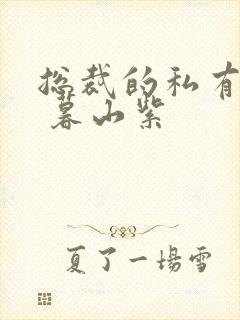 总裁的私有
暮山紫
夏了一场雪